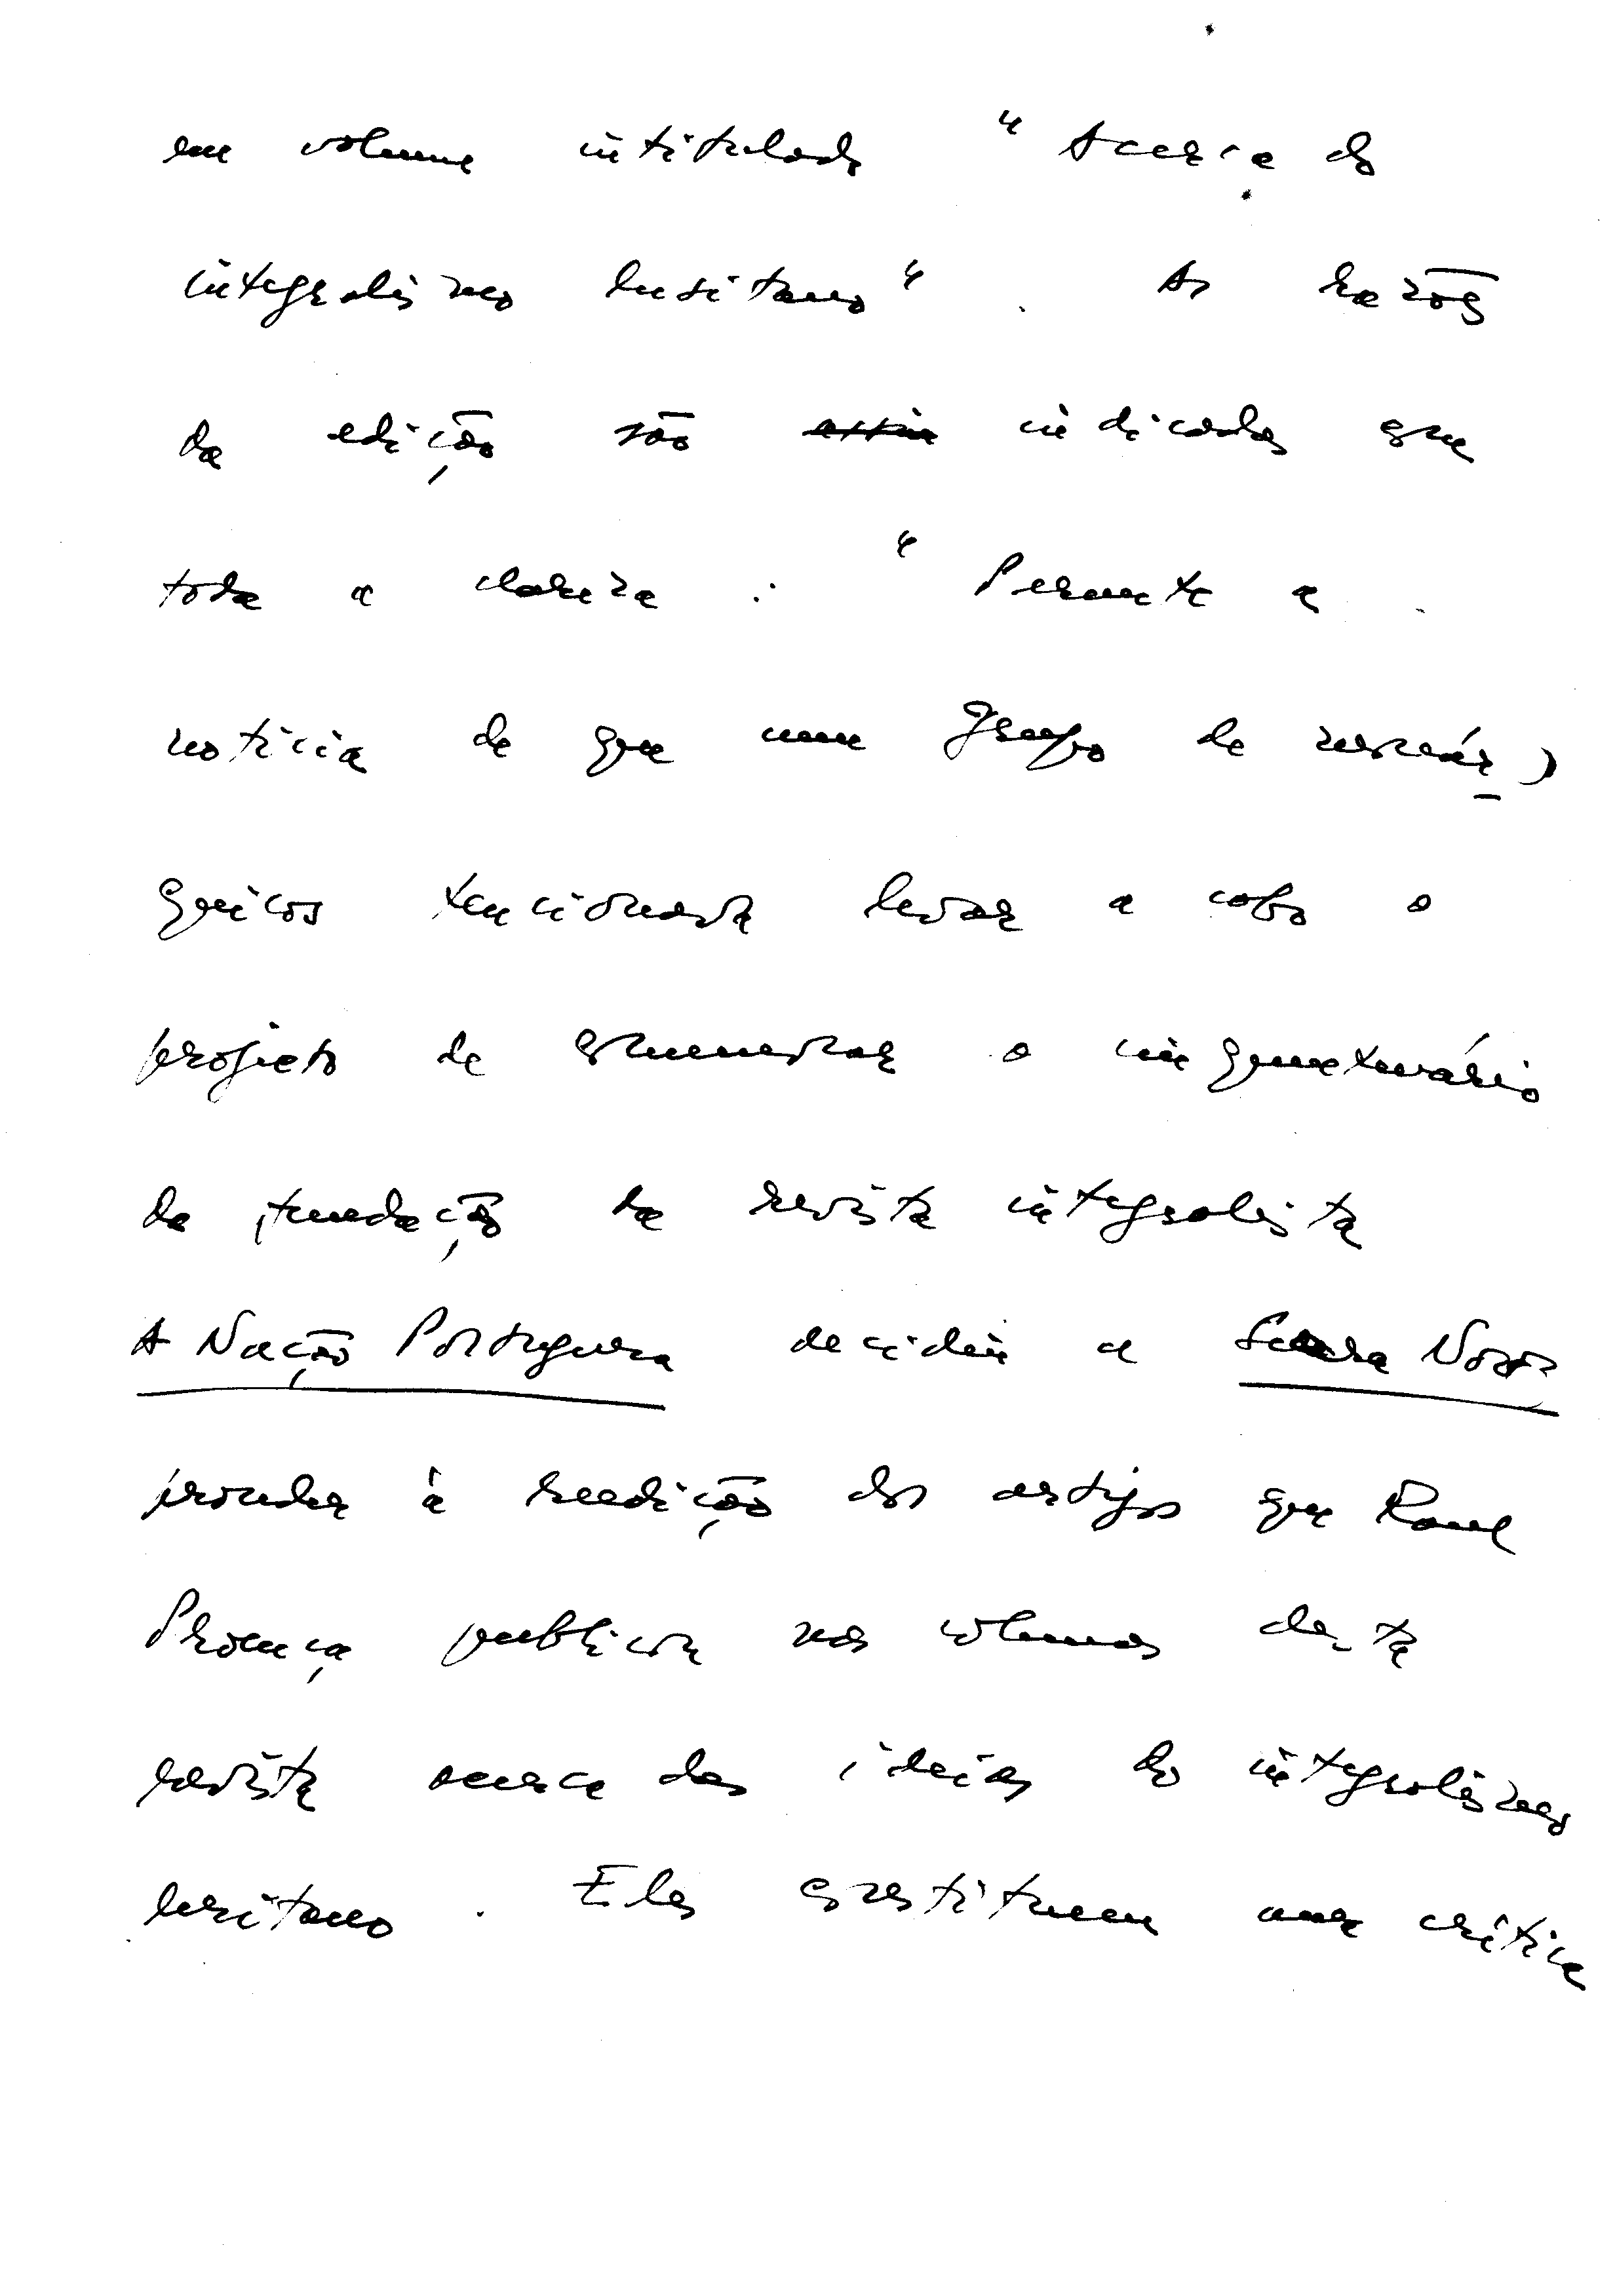 em volume intitulado "Acerca do
integralismo lusitano". As razões
da edição são assim indicadas com
toda a clareza: "Perante a
notícia de que um grupo de monár)
quicos tencionava levar a cabo o
projecto de comemorar o cinquentenário
da fundação da revista integralista
A Nação Portuguesa decidiu a Seara Nova
proceder à reedição dos artigos que Raul
Proença publicou nas colunas desta
revista acerca das ideias do integralismo
lusitano. Eles constituem uma crítica